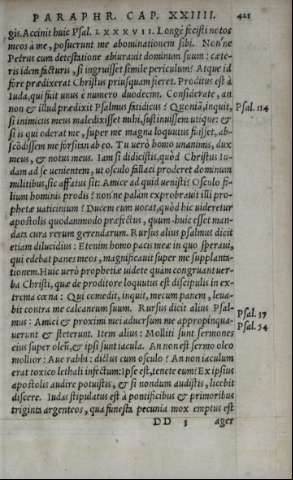 PARAPHR. CAP. XXIIII. 421
gis. Accinit huic Psal. LXXXVII. Longè fecisti notos
meos à me, posuerunt me abominationem sibi. Non'ne
Petrus cum detestatione abiurauit dominum suum: cæte-
ris idem facturis, si ingruisset simile periculum? Atque id
fore prædixerat Christus priusquam fieret. Proditus est à
Iuda, qui fuit unus è numero duodecim. Considerate, an
non & illud prædixit Psalmus fatidicus? Quoniã, inquit,
Psal. 114
si inimicus meus maledixisset mihi, sustinuissem utique: &
si is qui oderat me, super me magna loquutus fuisset, ab-
scõdissem me forsitan ab eo. Tu uerò homo unanimis, dux
meus, & notus meus. Iam si didicistis, quòd Christus Iu-
dam ad se uenientem, ut osculo fallaci proderet dominum
militibus, sic affatus sit: Amice ad quid uenisti? Osculo fi-
lium hominis prodis? non'ne palàm exprobrauit illi pro-
phetæ uaticinium? Ducem eum uocat, quòd hic uideretur
apostolis quodammodo præfectus, quum huic esset man-
data cura rerum gerendarum. Rursus alius psalmus dicit
etiam dilucidius: Etenim homo pacis meæ in quo speraui,
qui edebat panes meos, magnificauit super me supplanta-
tionem. Huic uerò prophetiæ uidete quàm congruant uer-
ba Christi, quæ de proditore loquutus est discipulis in ex-
trema cœna: Qui comedit, inquit, mecum panem, leua-
bit contra me calcaneum suum. Rursus dicit alius Psal-
Psal. 37
mus: Amici & proximi mei aduersum me appropinqua-
uerunt & steterunt. Item alius: Molliti sunt sermones
Psal. 54
eius super oleũ, & ipsi sunt iacula. An non est sermo oleo
mollior: Aue rabbi: dictus cum osculo? An non iaculum
erat toxico lethali infectum: Ipse est, tenete eum? Ex ipsius
apostolis audire potuistis, & si nondum audistis, licebit
discere. Iudas stipulatus est à pontificibus & primoribus
triginta argenteos, qua funesta pecunia mox emptus est
DD 3 ager